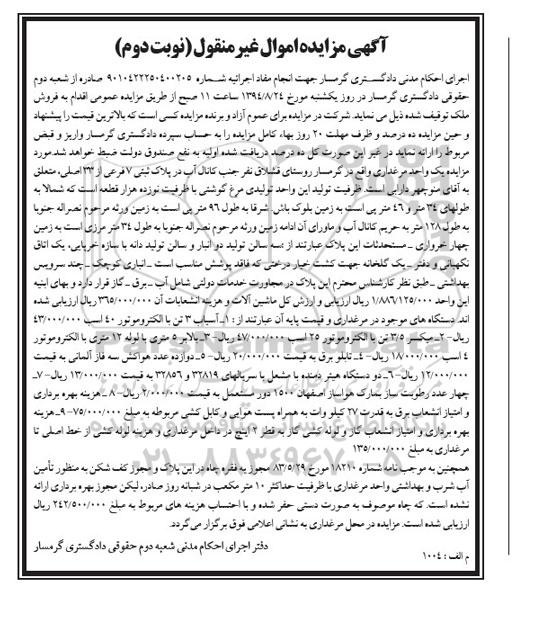 آگهی مزایده اموال غیر منقول (نوبت دوم)
اجرای احکام مدنی دادگستری گرمسار جهت انجام مفاد اجرائیه شماره ۹۰۱۰۴۲۲۲۵۰۴۰۰۲۰۵ صادره از شعبه دوم
حقوقی دادگستری گرمسار در روز یکشنبه مورخ ۱۳۹۴/۸/۲۴ ساعت ۱۱ صبح از طریق مزایده عمومی اقدام به فروش
ملک توقیف شده ذیل می نماید. شرکت در مزایده برای عموم آزاد و برنده مزایده کسی است که بالاترین قیمت را پیشنهاد
و حین مزایده ده درصد و ظرف مهلت ۲۰ روز بهاء کامل مزایده را به حساب سپرده دادگستری گرمسار واریز و قبض
مربوط را ارائه نماید در غیر این صورت کل ده درصد دریافت شده اولیه به نفع صندوق دولت ضبط خواهد شد.مورد
مزایده یک واحد مرغداری واقع در گرمسار روستای قشلاق نفر جنب کانال آب در پلاک ثبتی ۷ فرعی از ۳۳ اصلی، متعلق
به آقای منوچهر دارابی است. ظرفیت تولید این واحد تولیدی مرغ گوشتی با ظرفیت نوزده هزار قطعه است که شمالا به
طولهای ۳۴ متر و ۴۶ متر پی است به زمین بلوک باش. شرقا به طول ۹۶ متر پی است به زمین ورثه مرحوم نصراله جنوبا
به طول ۱۲۸ متر به حریم کانال آب و ماورای آن ادامه زمین ورثه مرحوم نصراله جنوبا به طول ۳۴ متر مرزی است به زمین
چهار خرواری ــ مستحدثات این پلاک عبارتند از :سه سالن تولید دو انبار و سالن تولید دانه با سازه خرپایی، یک اتاق
نگهبانی و دفتر ــ یک گلخانه جهت کشت خیار درختی که فاقد پوشش مناسب است ــ انباری کوچک ــ چند سرویس
بهداشتی ــ طبق نظر کارشناس محترم این پلاک در مجاورت خدمات دولتی شامل آب ــ برق ــ گاز قرار دارد و بهای ابنیه
این واحد ۱/۸۸۶/۱۲۵/۰۰۰ ریال ارزیابی و ارزش کل ماشین آلات و هزینه انشعابات آن ۳۶۵/۰۰۰/۰۰۰ ریال ارزیابی شده
اند. دستگاه های موجود در مرغداری و قیمت پایه آن عبارتند از : ۱ــ آسیاب ۳ تن با الکتروموتور ۴۰ اسب ۴۳/۰۰۰/۰۰۰
ریال-۲ــ میکسر ۳/۵ تن با الکتروموتور ۲۵ اسب ۴۷/۰۰۰/۰۰۰ ریال-۳ــ بالابر ۵ متری با لوله ۱۲ متری با الکتروموتور
۴ اسب ۱۸/۰۰۰/۰۰۰ ریال-۴ــ تابلو برق به قیمت ۲۰/۰۰۰/۰۰۰ ریال-۵ــ دوازده عدد هواکش سه فاز آلمانی به قیمت
۱۲/۰۰۰/۰۰۰ ریال-۶ــ دو دستگاه هیتر دمنده با مشعل با سریالهای ۳۲۸۱۹ و ۳۲۸۵۶ به قیمت ۱۳/۰۰۰/۰۰۰ ریال-۷ــ
چهار عدد رطوبت ساز بمارک هواساز اصفهان ۱۵۰۰ دور مستعمل به قیمت ۲/۰۰۰/۰۰۰ ریال-۸ــ هزینه بهره برداری
و امتیاز انشعاب برق به قدرت ۲۷ کیلو وات به همراه پست هوایی و کابل کشی مربوطه به مبلغ ۷۵/۰۰۰/۰۰۰-۹ــ هزینه
بهره برداری و امتیاز انشعاب گاز و لوله کشی گاز به قطر ۲ اینچ در داخل مرغداری و هزینه لوله کشی از خط اصلی تا
مرغداری به مبلغ ۱۳۵/۰۰۰/۰۰۰
همچنین به موجب نامه شماره ۱۸۲۱۰ مورخ ۸۳/۵/۲۹ مجوز یه فقره چاه در این پلاک و مجوز کف شکن به منظور تأمین
آب شرب و بهداشتی واحد مرغداری با ظرفیت حداکثر ۱۰ متر مکعب در شبانه روز صادر، لیکن مجوز بهره برداری ارائه
نشده است. که چاه موصوف به صورت دستی حفر شده و با احتساب هزینه های مربوط به مبلغ ۲۴۲/۵۰۰/۰۰۰ ریال
ارزیابی شده است. مزایده در محل مرغداری به نشانی اعلامی فوق برگزار می گردد.
دفتر اجرای احکام مدنی شعبه دوم حقوقی دادگستری گرمسار
م الف : ۱۰۰۴
ParsNamadData
۰۲۱-۸۸۳۴۹۶۷۰